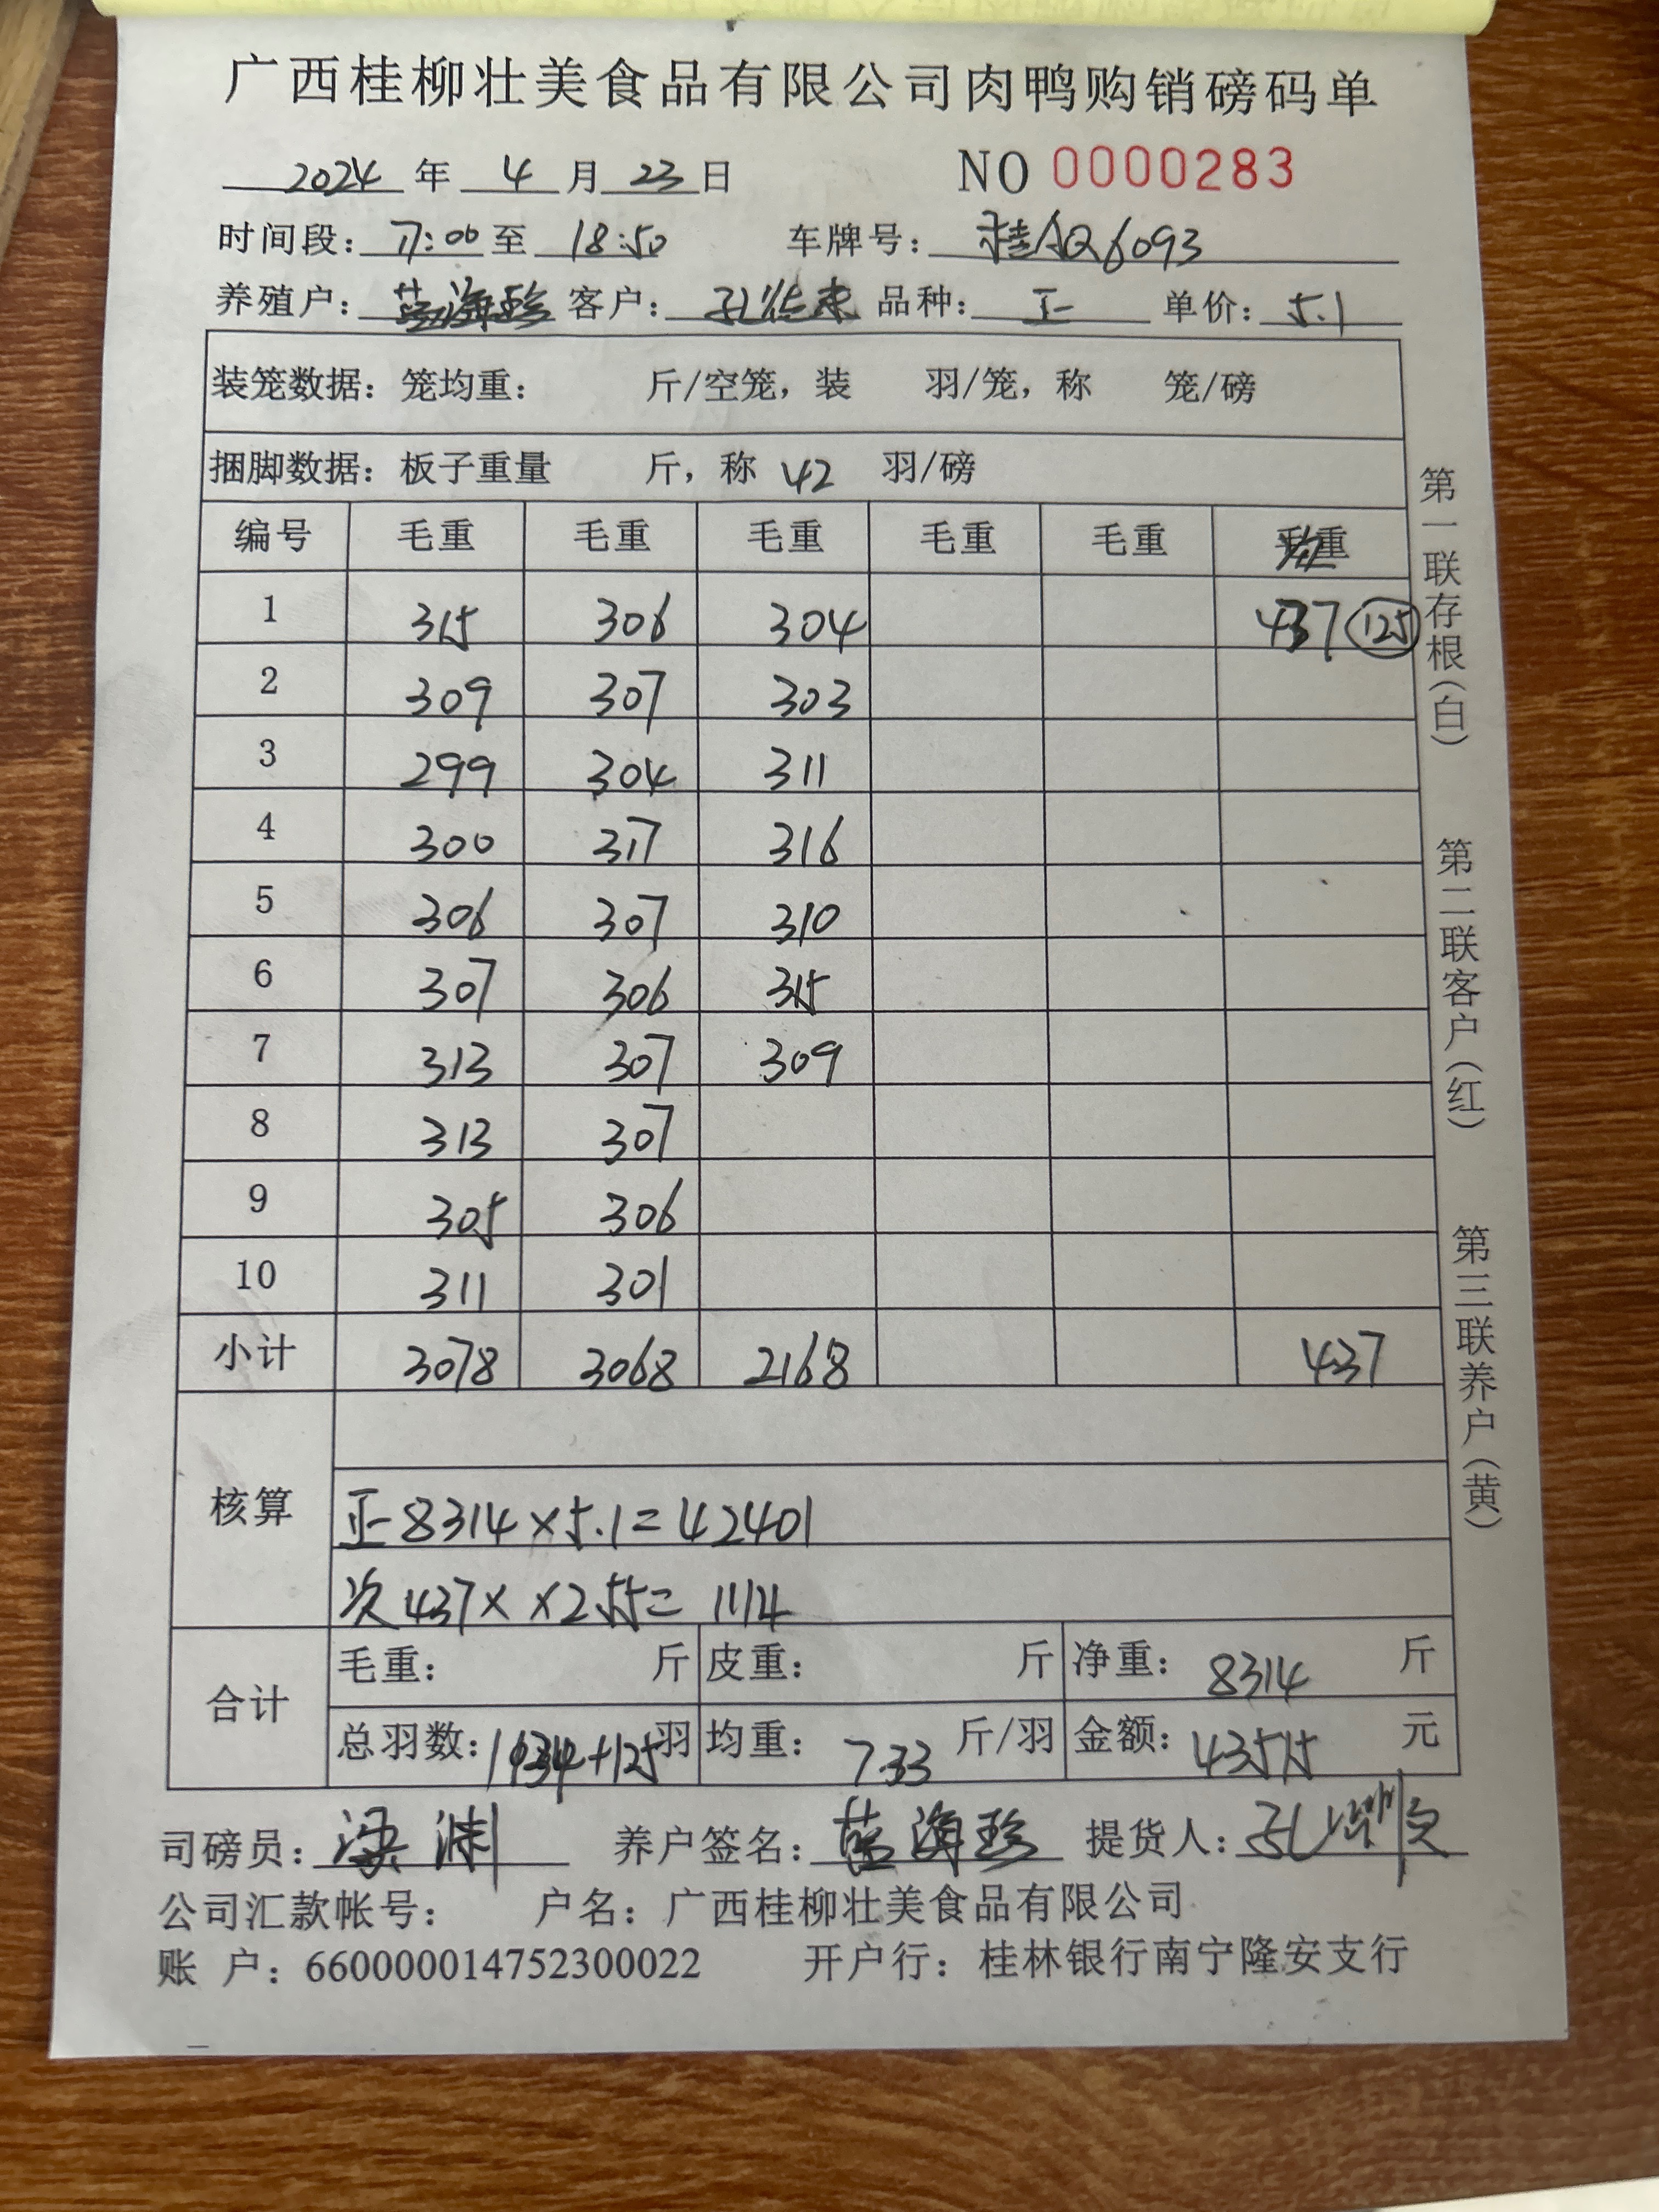 广西桂柳壮美食品有限公司肉鸭购销磅码单
2024 年 4 月 23 日 NO 0000283
时间段: 17:00 至 18:50 车牌号: 桂AQ6093
养殖户: 蓝海珍 客户: 品种: 正 单价: 5.1
装笼数据: 笼均重: 斤/空笼, 装 羽/笼, 称 笼/磅
捆脚数据: 板子重量 斤, 称 42 羽/磅
编号 毛重 毛重 毛重 毛重 毛重 重
1 315 306 304 437 125
2 309 307 303
3 299 304 311
4 300 317 316
5 306 307 310
6 307 306 315
7 313 307 309
8 313 307
9 305 306
10 311 301
小计 3078 3068 2168 437
核算
正 8314×5.1=42401
次 437× ×2.55= 1114
合计 毛重: 斤 皮重: 斤 净重: 8314 斤
总羽数: 1134+125 羽 均重: 7.33 斤/羽 金额: 43515 元
司磅员: 养户签名: 蓝海珍 提货人:
公司汇款帐号: 户名: 广西桂柳壮美食品有限公司
账 户: 660000014752300022 开户行: 桂林银行南宁隆安支行
第一联存根(白) 第二联客户(红) 第三联养户(黄)